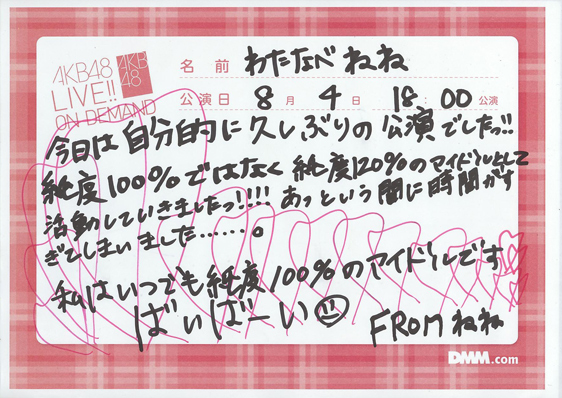 AKB48
LIVE!!
ON DEMAND
AKB
48
名前 わたなべ ねね
公演日 8月 4日 18:00 公演
今日は自分的に久しぶりの公演でしたっ!!
純度100%ではなく 純度120%のアイドルとして
活動していきましたっ!!!! あっという間に時間がす
ぎてしまいました……。
私はいつでも純度100%のアイドルです
ばいばーい
FROM ねね
DMM.com